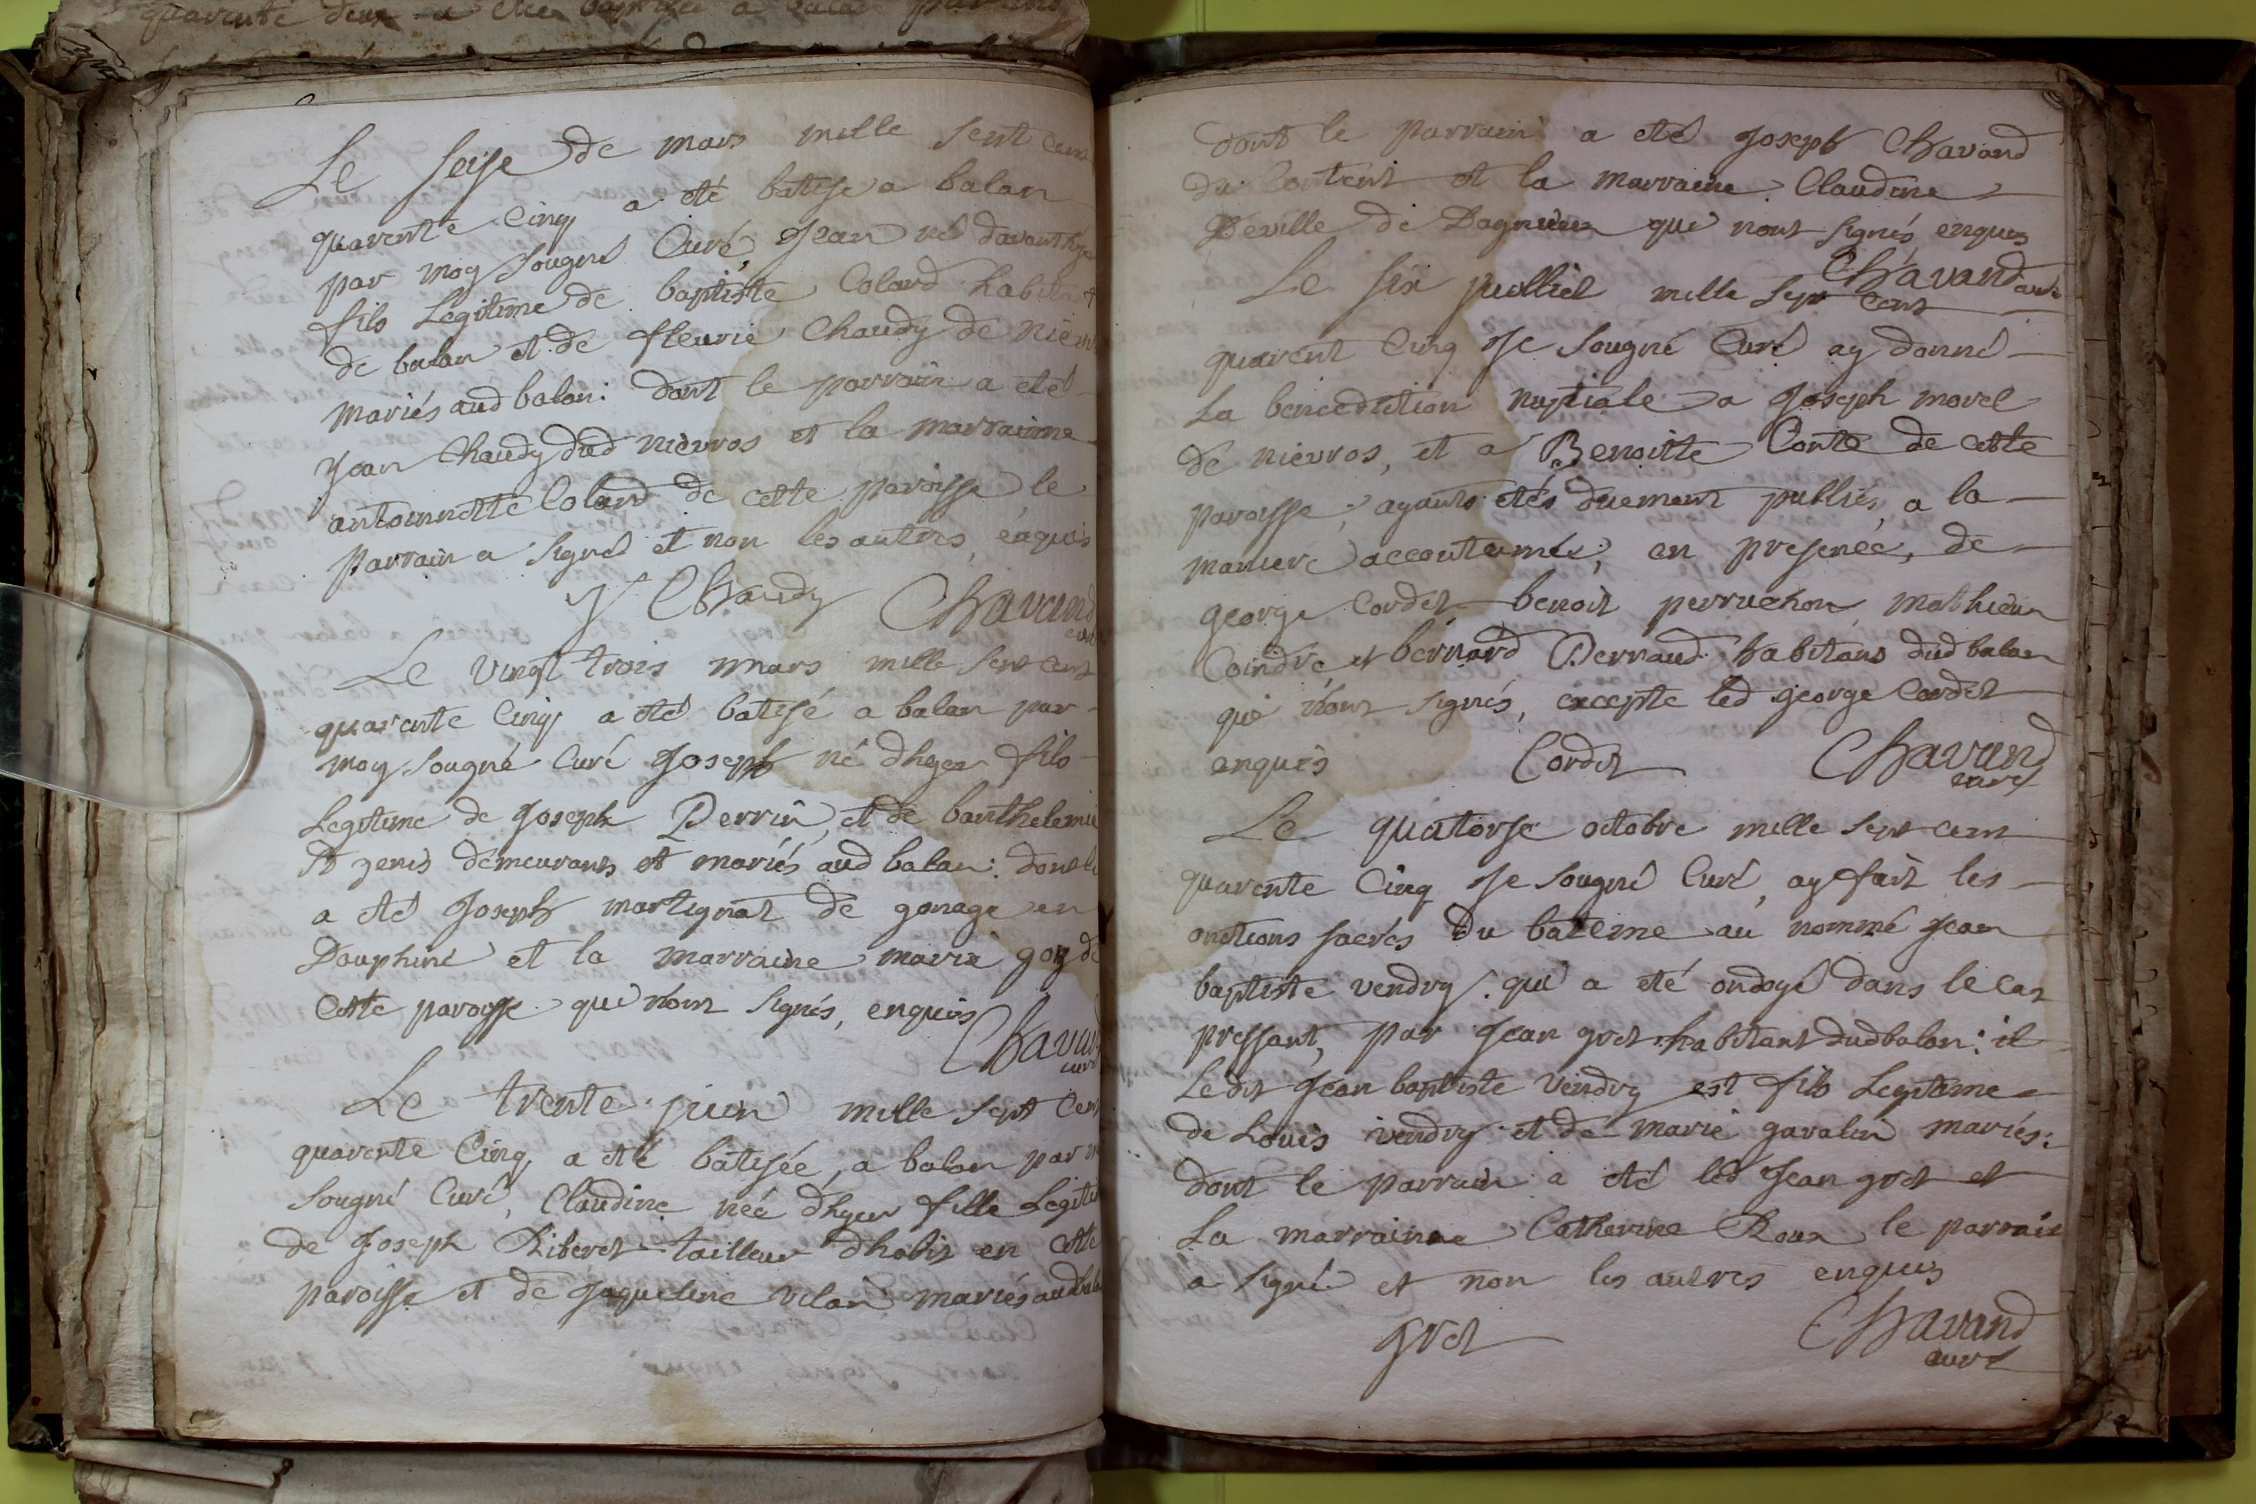 quarente deux a été baptisé a balan par
Le seise de mars mille sept cent
quarente Cinq a été batise a balan
par moy sougné Curé, Jean né davanthyer
fils Legitime de baptiste Colard habitant
de balan et de fleurie Chaudy de niev
mariés aud balan: dont le parrain a eté
Jean Chaudy dud nievros et la marrainne
antoinnette Colard de cette paroisse le
parrain a signé et non les autres, enquis
J Chaudy Chavand
curé
Le vingt trois mars mille sept cent
quarente Cinq a eté batisé a balan par
moy sougné Curé Joseph né dhyer fils
Legitime de Joseph Perrin, et de barthelemie
St genis demeurants et mariés aud balan: dont le
a eté Joseph martignat de gonage en
Dauphiné et la marraine marie goy de
Cette paroisse qui nont signés, enquis
Chavand
curé
Le trente juin mille sept Cent
quarente Cinq, a eté batisée, a balan par m
Sougné Curé, Claudine née dhyer fille Legiti
de Joseph Riberet tailleur dhabit en Cette
paroisse et de Jaqueline vilan mariés aud bala
dont le parrain a eté Joseph Chavand
du Content et la marraine Claudine
Deville de Dagnieu qui nont signés enquis
Chavand curé
Le six juilliet mille sept cent
quarent Cinq Je sougné Curé ay donné
La benediction nuptiale a Joseph morel
de nievros, et a Benoitte Conte de cette
paroisse; ayants etés duement publiés, a la
maniere accoutumée; en presence, de
george Cordet benoit perruchon mathieu
Coindre, et bernard Perraud habitans dud balan
qui nont signés, excepte led george Cordet
enquis Cordet Chavand
curé
Le quatorse octobre mille sept cent
quarente Cinq Je sougné Curé, ay fait les
onctions sacrés du bateme au nommé Jean
baptiste vendry. qui a eté ondoyé dans le cas
pressant, par Jean gret habitant dudbalan: il
Ledit Jean baptiste vendry est fils Legitime
de Louis vendry et de marie gavalin mariés:
dont le parrain a eté led Jean gret et
La marrainne Catherine Roux le parrain
a signé et non les autres enquis
gret Chavand
curé